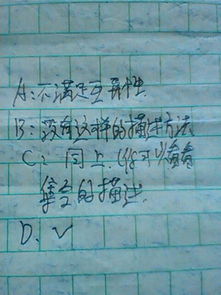 A：不满足互异性
B：没有这样的描述方法
C：同上，(你可以看看
集合的描述
D、√